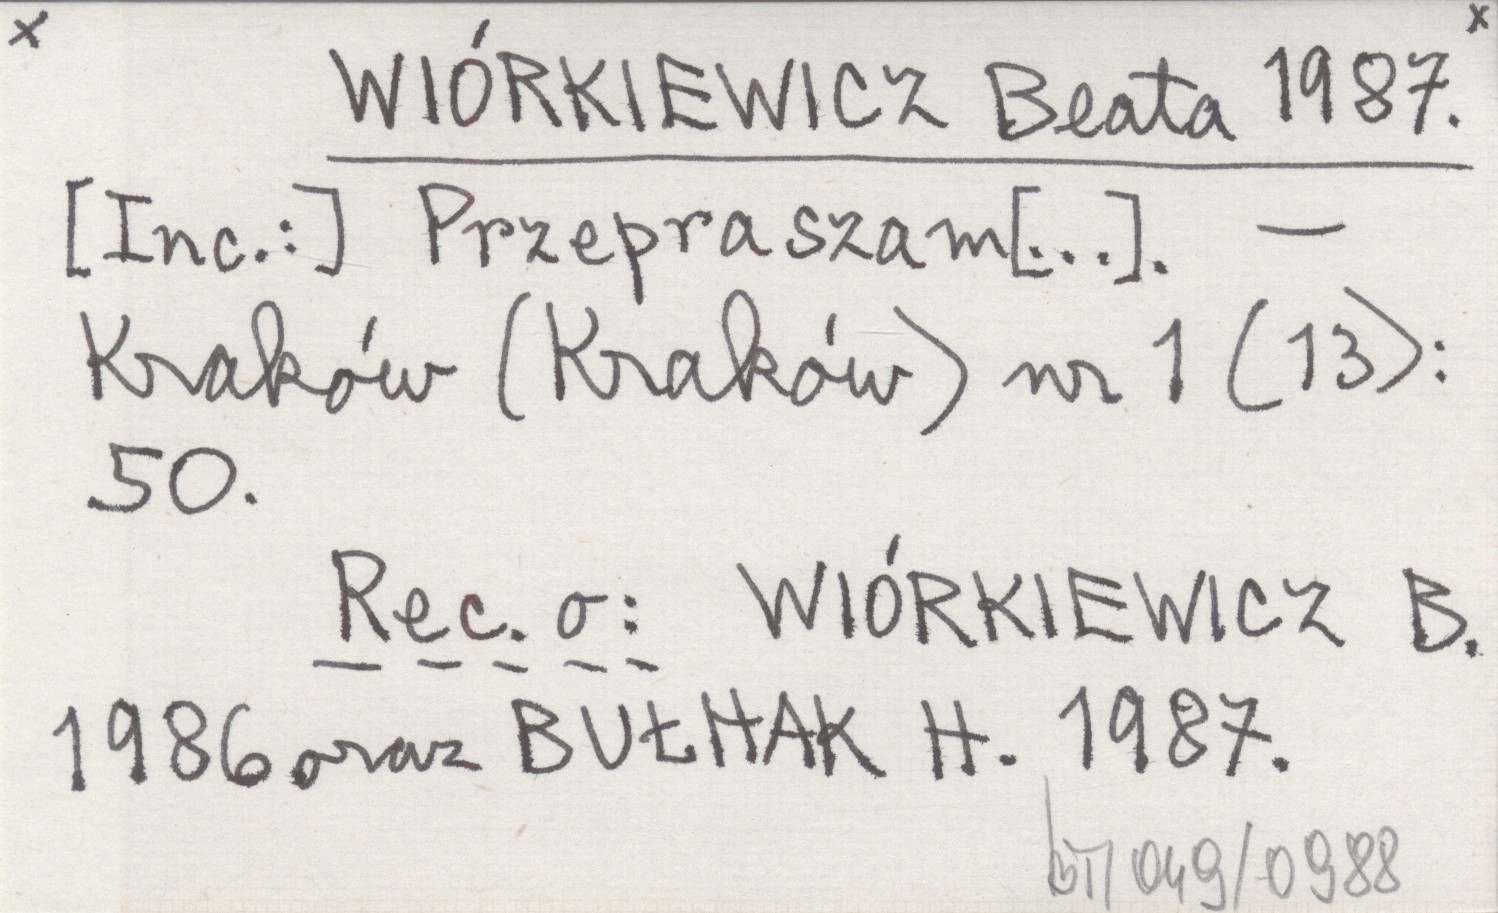 x x
WIÓRKIEWICZ Beata 1987.
[Inc.:] Przepraszam[...]. —
Kraków (Kraków) nr 1 (13):
50.
Rec. o: WIÓRKIEWICZ B.
1986 oraz BUŁHAK H. 1987.
049/0988